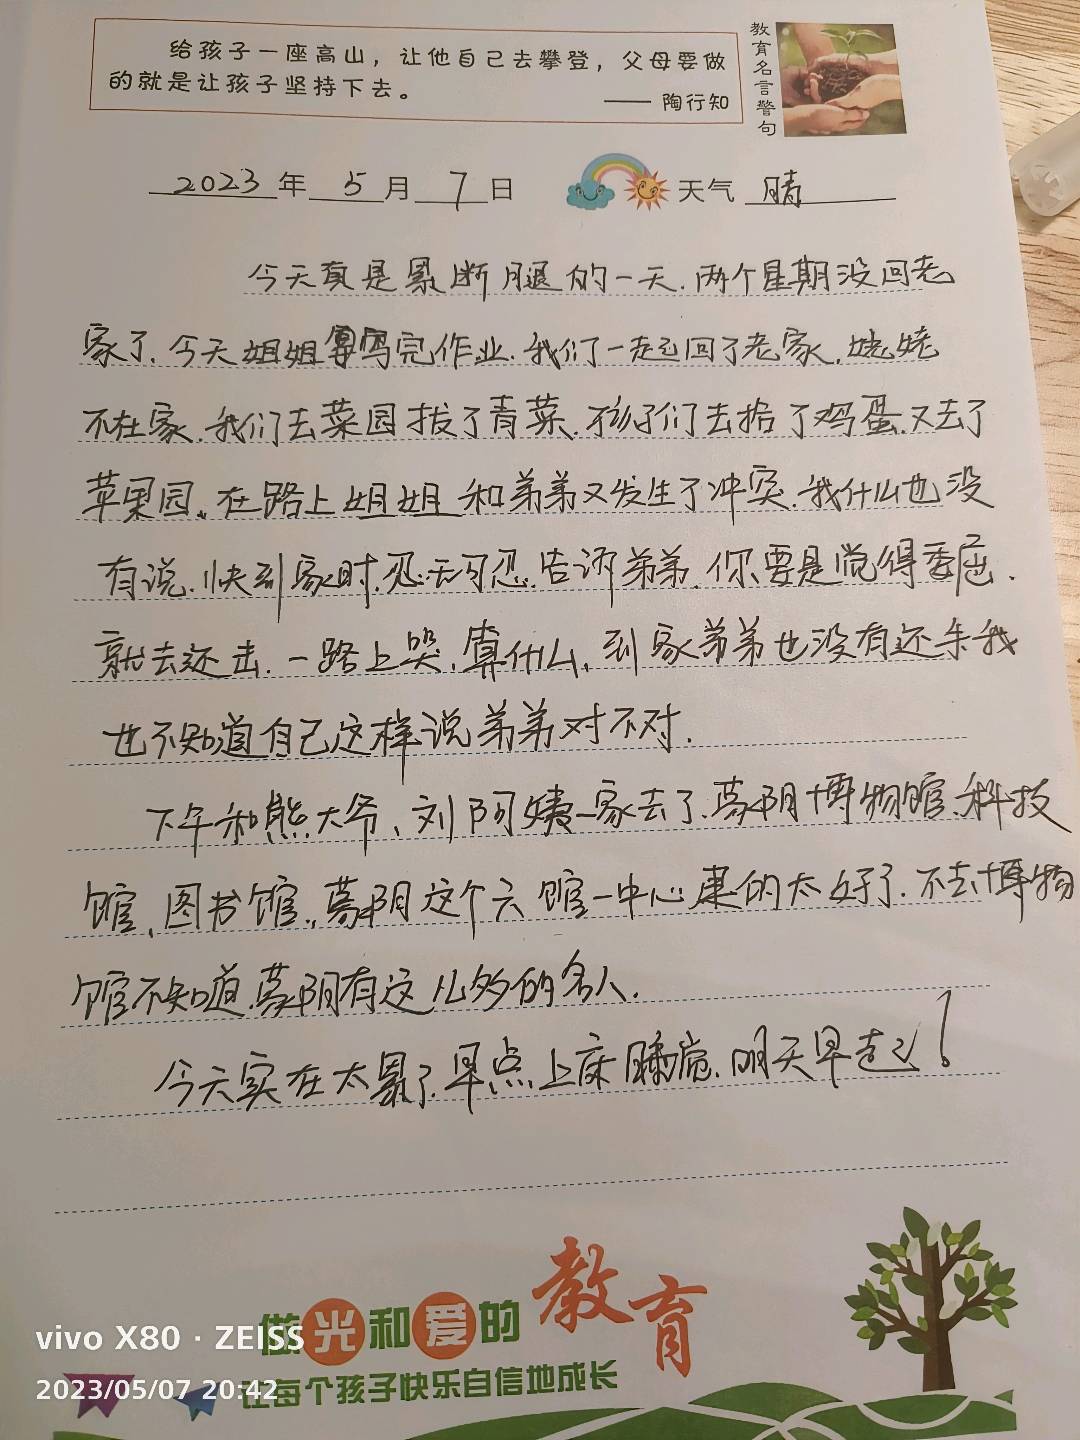 给孩子一座高山，让他自己去攀登，父母要做
的就是让孩子坚持下去。
—— 陶行知
教育名言警句
2023年 5月 7日 天气 晴
今天真是累断腿的一天.两个星期没回老
家了.今天姐姐算写完作业.我们一起回了老家.姥姥
不在家.我们去菜园拔了青菜.孩子们去拾了鸡蛋.又去了
苹果园.在路上姐姐和弟弟又发生了冲突.我什么也没
有说.快到家时.忍无可忍.告诉弟弟.你要是觉得委屈.
就去还击.一路上哭.算什么.到家弟弟也没有还击我
也不知道自己这样说弟弟对不对.
下午和熊大爷、刘阿姨一家去了.蒙阴博物馆.科技
馆、图书馆.,蒙阴这个六馆一中心建的太好了.不去博物
馆不知道.蒙阴有这么多的名人.
今天实在太累了.早点上床睡觉.明天早起!
做光和爱的教育
让每个孩子快乐自信地成长
vivo X80 · ZEISS
2023/05/07 20:42